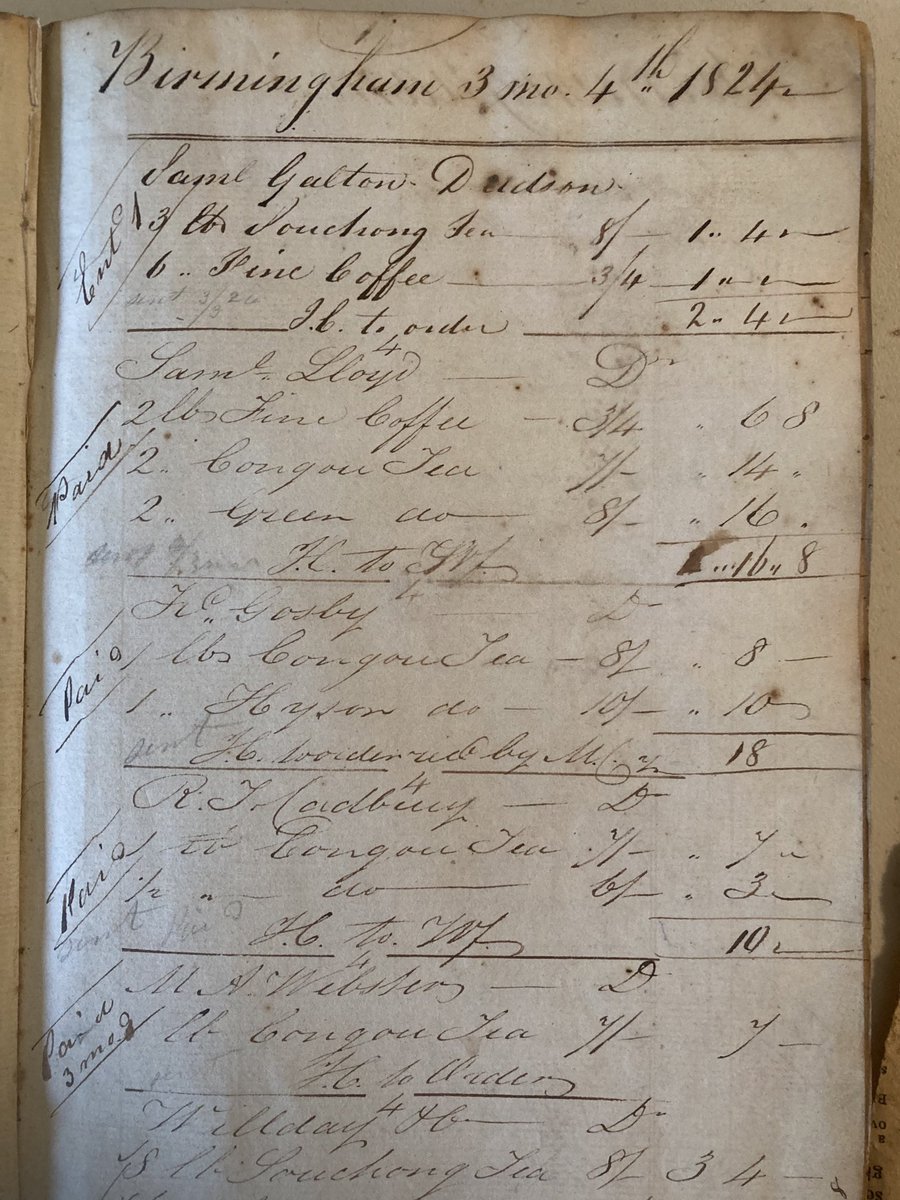 Birmingham 3 mo. 4th 1824
Saml Galton Dudson
Entd 3 lb Souchong Tea 8/ 1 " 4 "
6 " Fine Coffee 3/4 1 " "
sent
J.C. to order 2 " 4
Saml Lloyd Dr
2 lbs Fine Coffee 3/4 " 6 8
Paid 2 " Congou Tea 7/- " 14 "
2 " Green do 8/- " 16 "
H. to Wf. " 16 " 8
4
Gosby Dr
Paid 1 lbs Congou Tea 8/ " 8 -
1 " Hyson do 10/- " 10
sent H. ordered by M. 18
4
R. T. Cadbury Dr
Paid 1 lb Congou Tea 7/- " 7 "
1/2 " do 6/- " 3
sent Paid
H. to Wf. 10
4
M A Webster Dr
Paid 3 mo. 1 lb Congou Tea 7/- 7 -
sent H. to Order
4
Willday & Co Dr
8 lb Souchong Tea 8/ 3 4 -